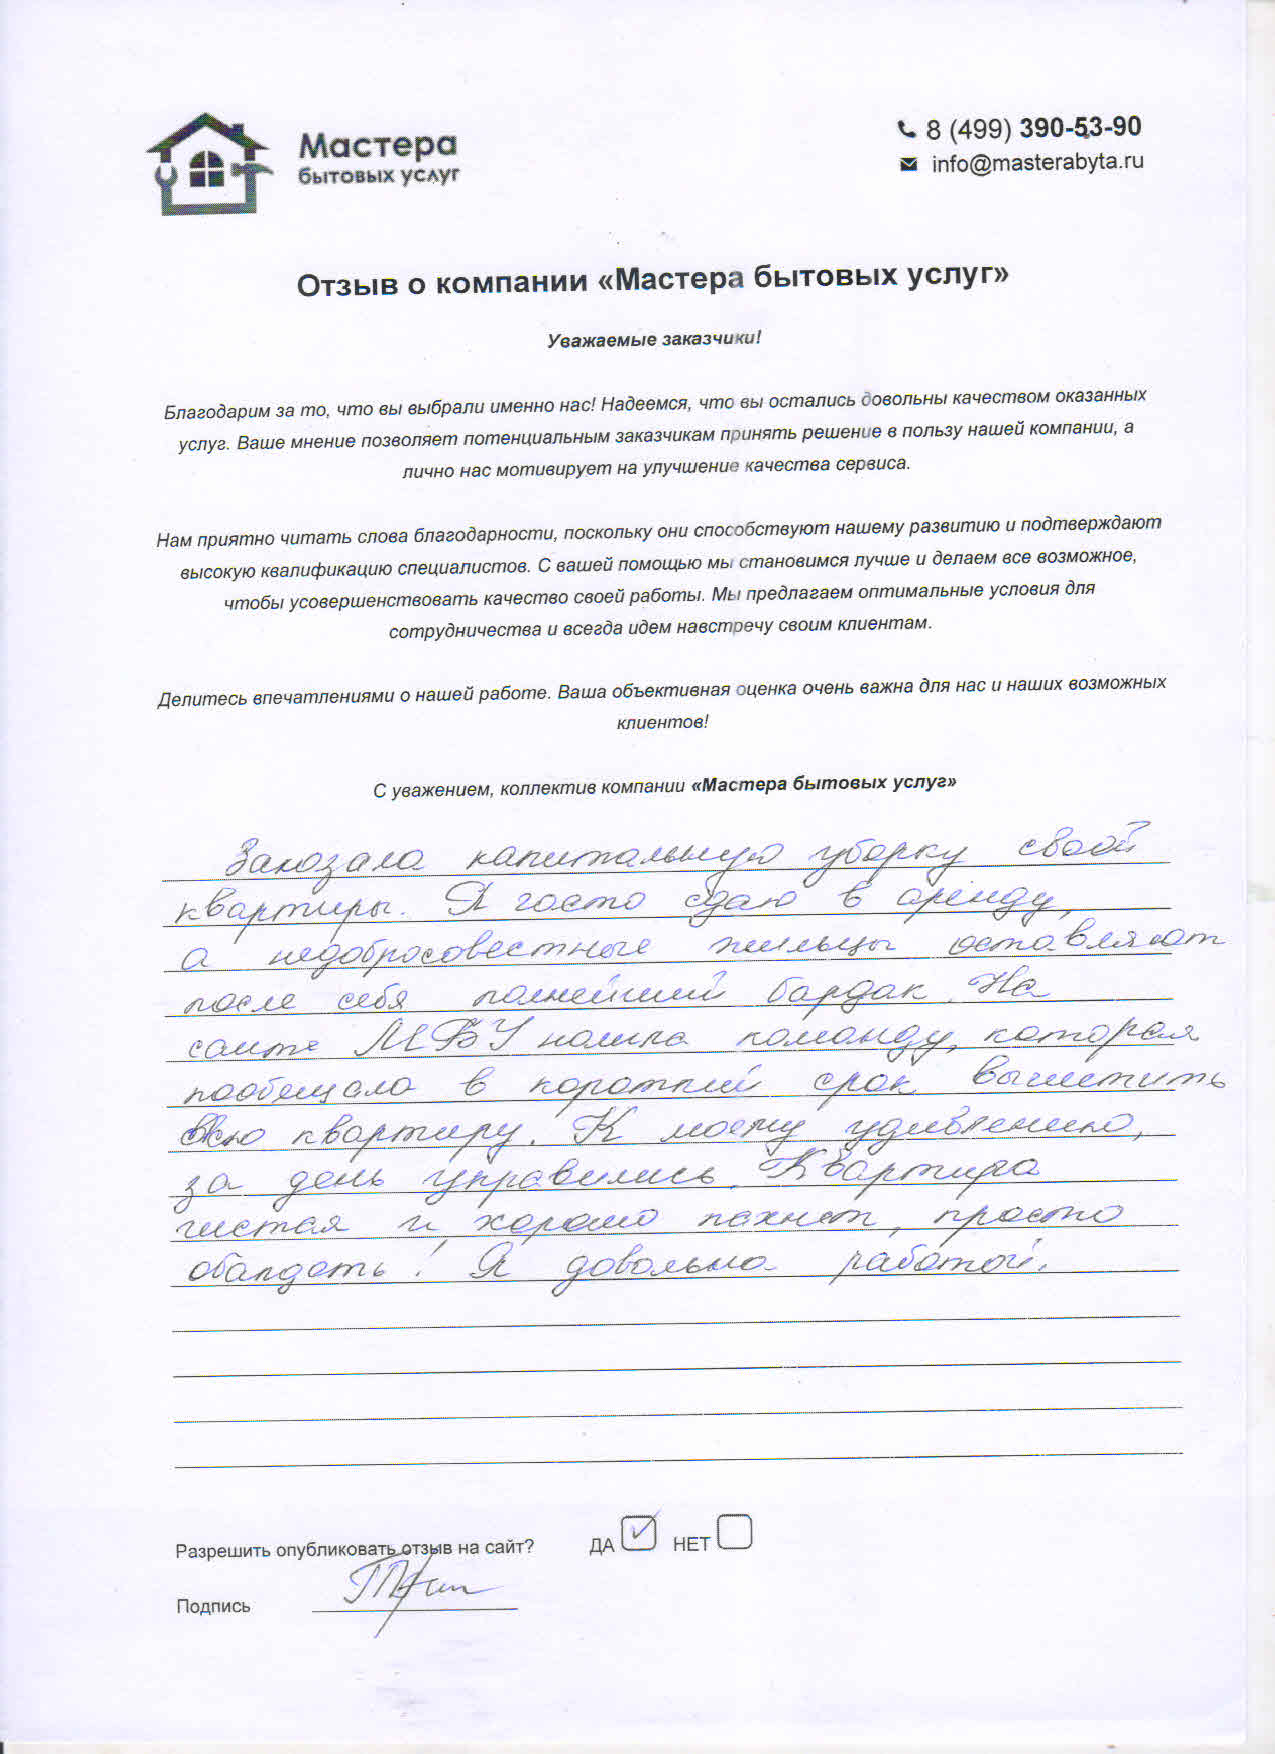 Мастера
бытовых услуг
8 (499) 390-53-90
info@masterabyta.ru
Отзыв о компании «Мастера бытовых услуг»
Уважаемые заказчики!
Благодарим за то, что вы выбрали именно нас! Надеемся, что вы остались довольны качеством оказанных
услуг. Ваше мнение позволяет потенциальным заказчикам принять решение в пользу нашей компании, а
лично нас мотивирует на улучшение качества сервиса.
Нам приятно читать слова благодарности, поскольку они способствуют нашему развитию и подтверждают
высокую квалификацию специалистов. С вашей помощью мы становимся лучше и делаем все возможное,
чтобы усовершенствовать качество своей работы. Мы предлагаем оптимальные условия для
сотрудничества и всегда идем навстречу своим клиентам.
Делитесь впечатлениями о нашей работе. Ваша объективная оценка очень важна для нас и наших возможных
клиентов!
С уважением, коллектив компании «Мастера бытовых услуг»
Заказала капитальную уборку своей
квартиры. Я часто сдаю в аренду,
а недобросовестные жильцы оставляют
после себя полнейший бардак. На
сайте МБУ нашла команду, которая
пообещала в короткий срок вычистить
всю квартиру. К моему удивлению,
за день управились. Квартира
чистая и хорошо пахнет, просто
обалдеть! Я довольна работой.
Разрешить опубликовать отзыв на сайт? ДА НЕТ
Подпись